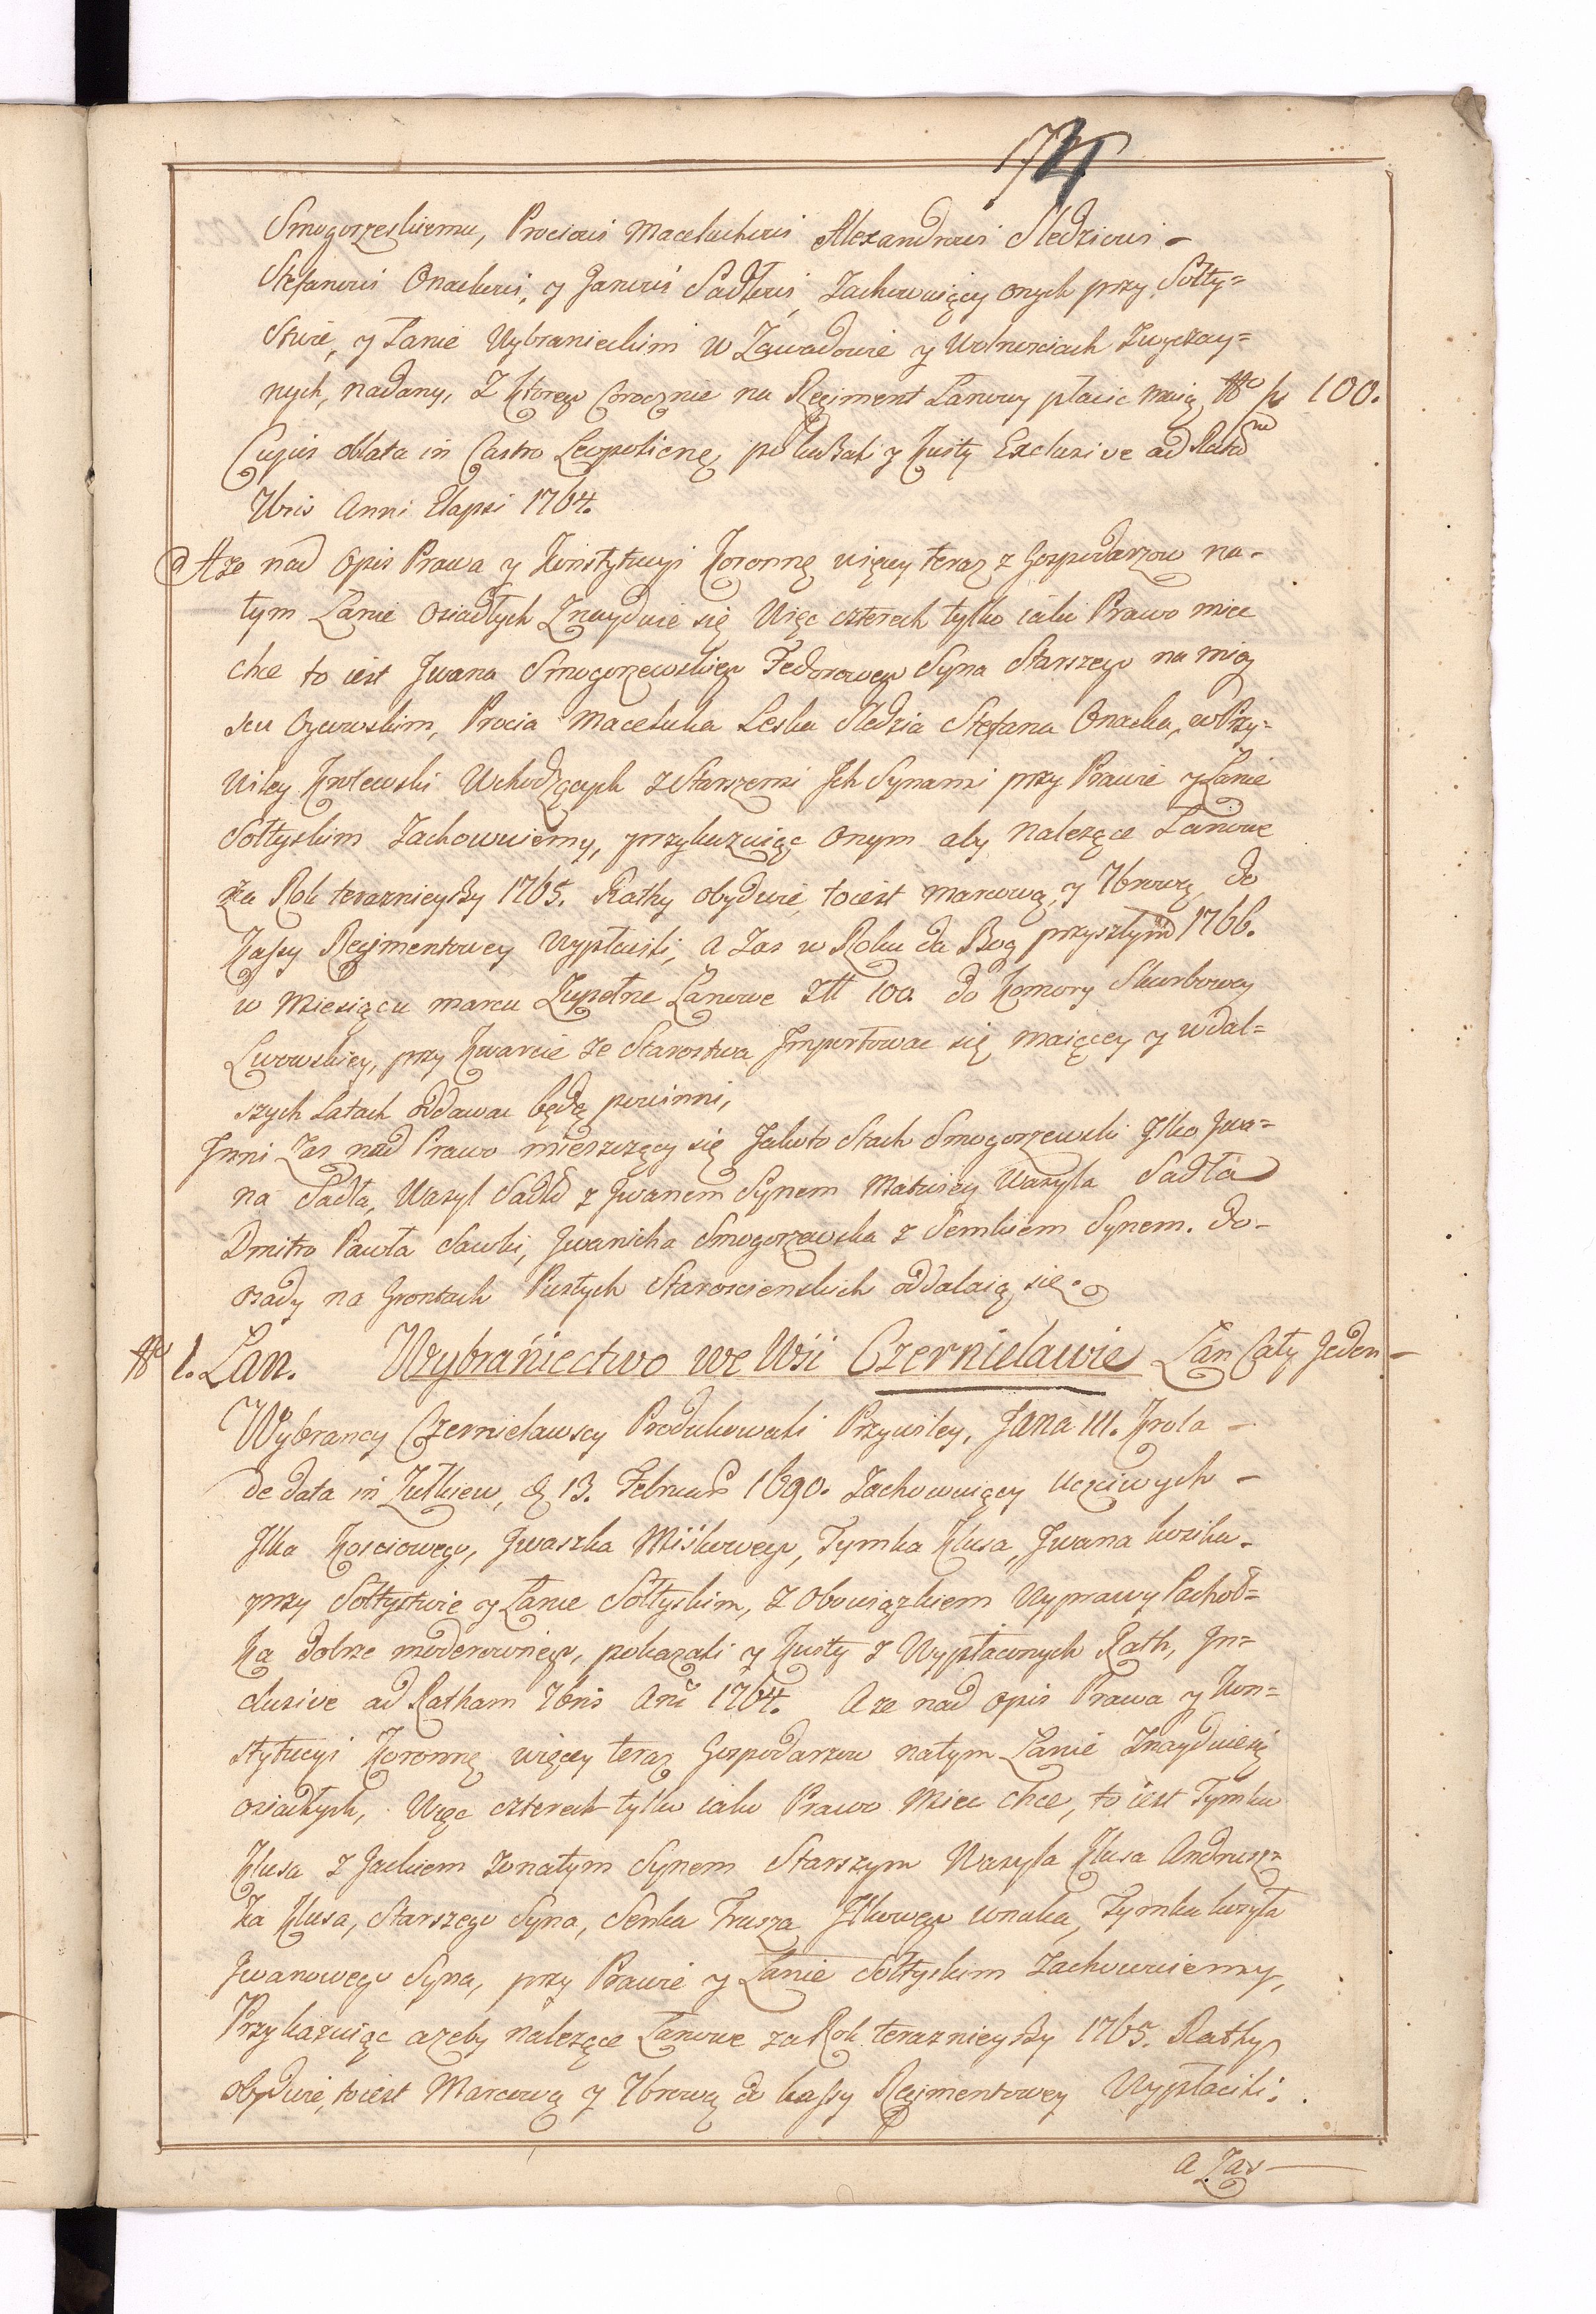 74
Smogorzeskiemu, Prociowi Maceluchowi Alexandrowi Sledziowi -
Stefanowi Onackowi, y Janowi Sadłowi, Zachowuiący onych przy Sołty=
stwie, y Łanie Wybranieckim w Zawadowie y Wolnosciach Zwyczay=
nych, nadany, Z ktorego Corocznie na Regiment Łanowy płacic maią fl° p 100.
Cuius oblata in Castro Leopoliens, pokazali y Kwity Exclusive ad Ratam
7bris Anni Elapsi 1764.
A ze nad Opis Prawa y Konstytucyi Koronnę więcy teraz z Gospodarzow na-
tym Łanie Osiadłych Znayduie się Więc czterech tylko iako Prawo miec
chce to iest Jwana Smogorzewskiego Fedorowego Syna Starszego na miey
scu Oycowskim, Procia Macelucha Leska Sledzia Stefana Onacka, w Przy=
wiley Krolewski Wchodzących z Starszemi Jch Synami przy Prawie y Łanie
Sołtyskim Zachowuiemy, przykazuiąc onym aby nalezące Łanowe
za Rok teraznieyszy 1765. Rathy obydwie, to iest Marcową, y 7brową do
Kassy Regimentowey Wypłacili, a Zas w Roku da Bog przyszłym 1766.
w Miesiącu marcu Zupełne Łanowe Złł 100. do Komory Skarbowey
Lwowskiey, przy Kwarcie ze Starostwa Jmportowac się maiącey y w dal=
szych Latach oddawac będą powinni,
Jnni Zas nad Prawo mieszczący się Jako to Stach Smogorzewski Jlko Jwa=
na Sadła, Wasyl Sadło z Jwanem Synem Matwiey Wasyla Sadła
Dmitro Pawła Sawki, Jwanicha Smogorzewska z Semkiem Synem. do-
osady na Gruntach Pustych Staroscienskich oddalaią się.
fl° 1. Łan. Wybraniectwo we Wsi Czernielawie Łan Cały Jeden -
Wybrancy Czernielawscy Produkowali Przywiley, Jana III. Krola -
de data in Zułkiew, d 13. Februar 1690. Zachowuiący Uczciwych -
Jlka Kosciowego, Jwaszka Miśkowego, Tymka Klusa, Jwana kozika -
przy Sołtystwie y Łanie Sołtyskim, z Obowiązkiem Wyprawy Pachoł=
ka dobrze moderownego, pokazali y Kwity z Wypłaconych Rath, Jn=
clusive ad Ratham 7bris Ani 1764. A ze nad opis Prawa y Kon=
stytucyi Koronnę więcey teraz Gospodarzow na tym Łanie Znayduie się
osiadłych, Więc czterech tylko iako Prawo Miec chce, to iest Tymka
Klusa z Jackiem Zonatym Synem Starszym Wasyla Klusa Andrusz=
ka Klusa, Starszego Syna, Senka Trusza Jlkowego wnuka, Tymka
Jwanowego Syna, przy Prawie y Łanie Sołtyskim Zachowuiemy,
Przykazuiąc azeby nalezące Łanowe za Rok teraznieyszy 1765. Rathy
obydwie, to iest Marcową y 7brową do kassy Regimentowey Wypłacili;
a Zas